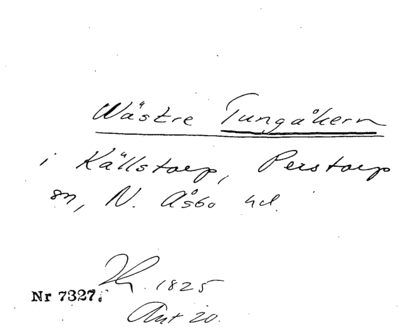 Wästre Tungåkern
i Källstorp, Perstorp
sn, N. Åsbo hd.
1825
Nr 7327.
Akt 20.